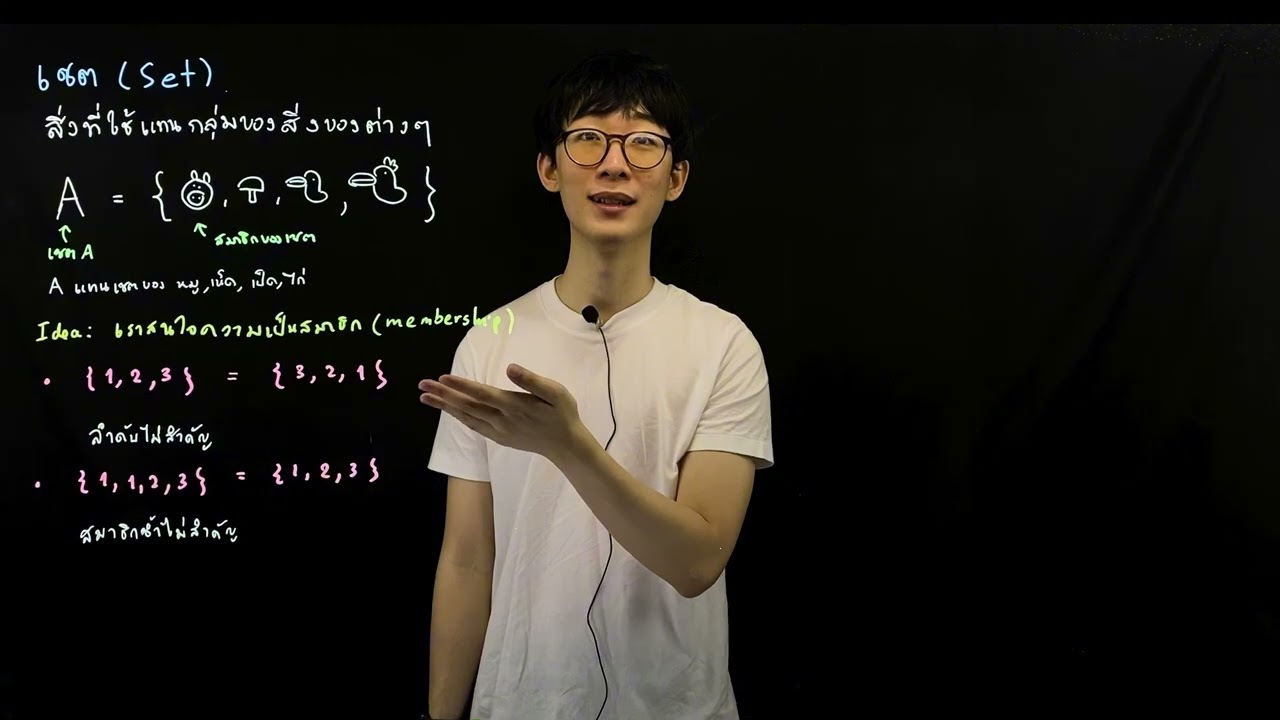 เซต (Set)
สิ่งที่ใช้แทนกลุ่มของสิ่งของต่างๆ
A = { , , , }
เซต A
สมาชิกของเซต
A แทนเซตของ หมู, เห็ด, เป็ด, ไก่
Idea: เราสนใจความเป็นสมาชิก (membership)
• {1, 2, 3} = {3, 2, 1}
ลำดับไม่สำคัญ
• {1, 1, 2, 3} = {1, 2, 3}
สมาชิกซ้ำไม่สำคัญ